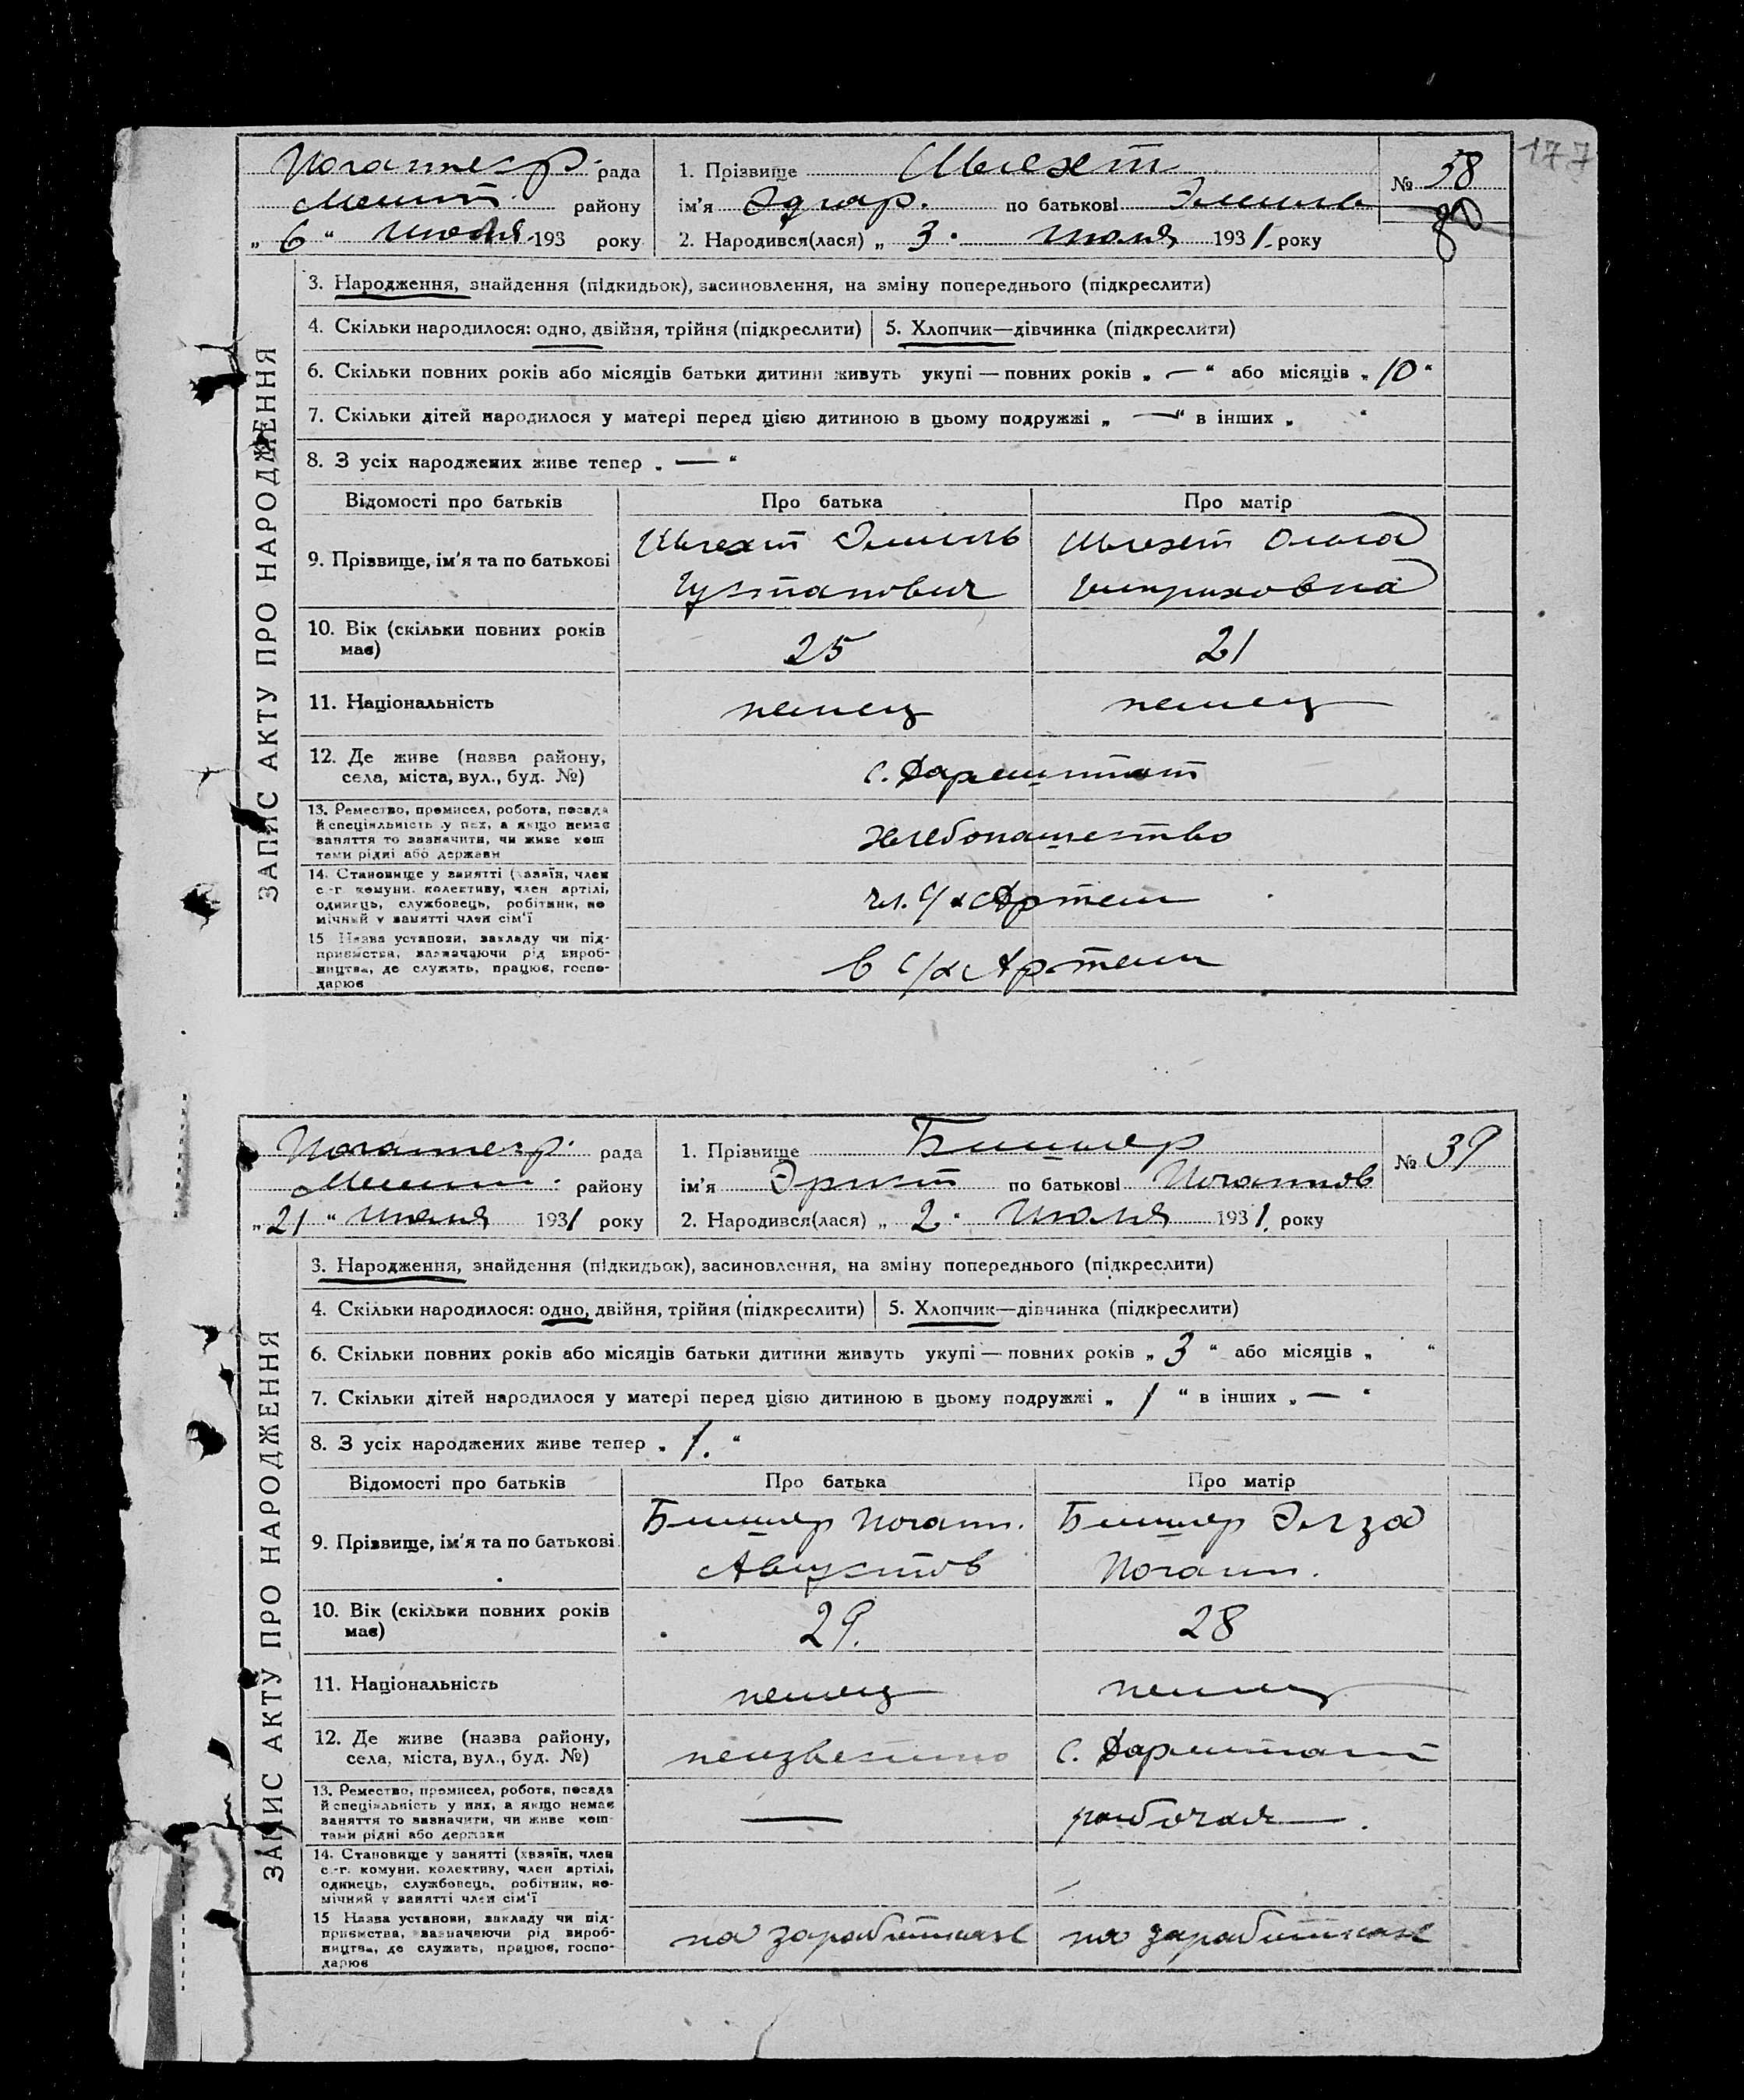 177
Иоганнеср. рада
Менит. району
„ 6 “ июля 193 року
1. Прізвище Шлехт
ім'я Эдгар. по батькові Эмиль
2. Народився(лася) „ 3 “ июля 1931. року
№ 38
ЗАПИС АКТУ ПРО НАРОДЖЕННЯ
3. Народження, знайдення (підкидьок), засиновлення, на зміну попереднього (підкреслити)
4. Скільки народилося: одно, двійня, трійня (підкреслити) 5. Хлопчик—дівчинка (підкреслити)
6. Скільки повних років або місяців батьки дитини живуть укупі — повних років „ — “ або місяців „ 10 “
7. Скільки дітей народилося у матері перед цією дитиною в цьому подружжі „ — “ в інших „ “
8. З усіх народжених живе тепер „ — “
Відомості про батьків Про батька Про матір
9. Прізвище, ім'я та по батькові
Шлехт Эмиль
Густавович
Шлехт Ольга
Генриховна
10. Вік (скільки повних років
має)
25 21
11. Національність немец немец
12. Де живе (назва району,
села, міста, вул., буд. №)
с. Дармштат
13. Ремество, промисел, робота, посада
й спеціяльність у них, а якщо немає
заняття то зазначити, чи живе кош
тами рідні або держави
хлебопашество
14. Становище у занятті (хазяїн, член
с.-г. комуни, колективу, член артілі,
одинець, службовець, робітник, по
мічний у занятті член сім'ї
чл. с/х Артели
15 Назва установи, закладу чи під-
приємства, зазначаючи рід вироб-
ництва, де служать, працює, госпо-
дарює
в с/х Артели
Иоганнеср. рада
Менит. району
„ 21 “ июля 1931 року
1. Прізвище Бишлер
ім'я Эрнст по батькові Иоганнов
2. Народився(лася) „ 2 “ Июля 1931. року
№ 39
ЗАПИС АКТУ ПРО НАРОДЖЕННЯ
3. Народження, знайдення (підкидьок), засиновлення, на зміну попереднього (підкреслити)
4. Скільки народилося: одно, двійня, трійня (підкреслити) 5. Хлопчик—дівчинка (підкреслити)
6. Скільки повних років або місяців батьки дитини живуть укупі — повних років „ 3 “ або місяців „ “
7. Скільки дітей народилося у матері перед цією дитиною в цьому подружжі „ 1 “ в інших „ — “
8. З усіх народжених живе тепер „ 1. “
Відомості про батьків Про батька Про матір
9. Прізвище, ім'я та по батькові
Бишлер Иоганн.
Августов
Бишлер Эльза
Иоганн.
10. Вік (скільки повних років
має)
29. 28
11. Національність немец немец
12. Де живе (назва району,
села, міста, вул., буд. №)
неизвестно с. Дармштатт
13. Ремество, промисел, робота, посада
й спеціяльність у них, а якщо немає
заняття то зазначити, чи живе кош-
тами рідні або держави
— рабочая.
14. Становище у занятті (хазяїн, член
с.-г. комуни, колективу, член артілі,
одинець, службовець, робітник, по-
мічний у занятті член сім'ї
15 Назва установи, закладу чи під-
приємства, зазначаючи рід вироб-
ництва, де служить, працює, госпо-
дарює
на заработках на заработках